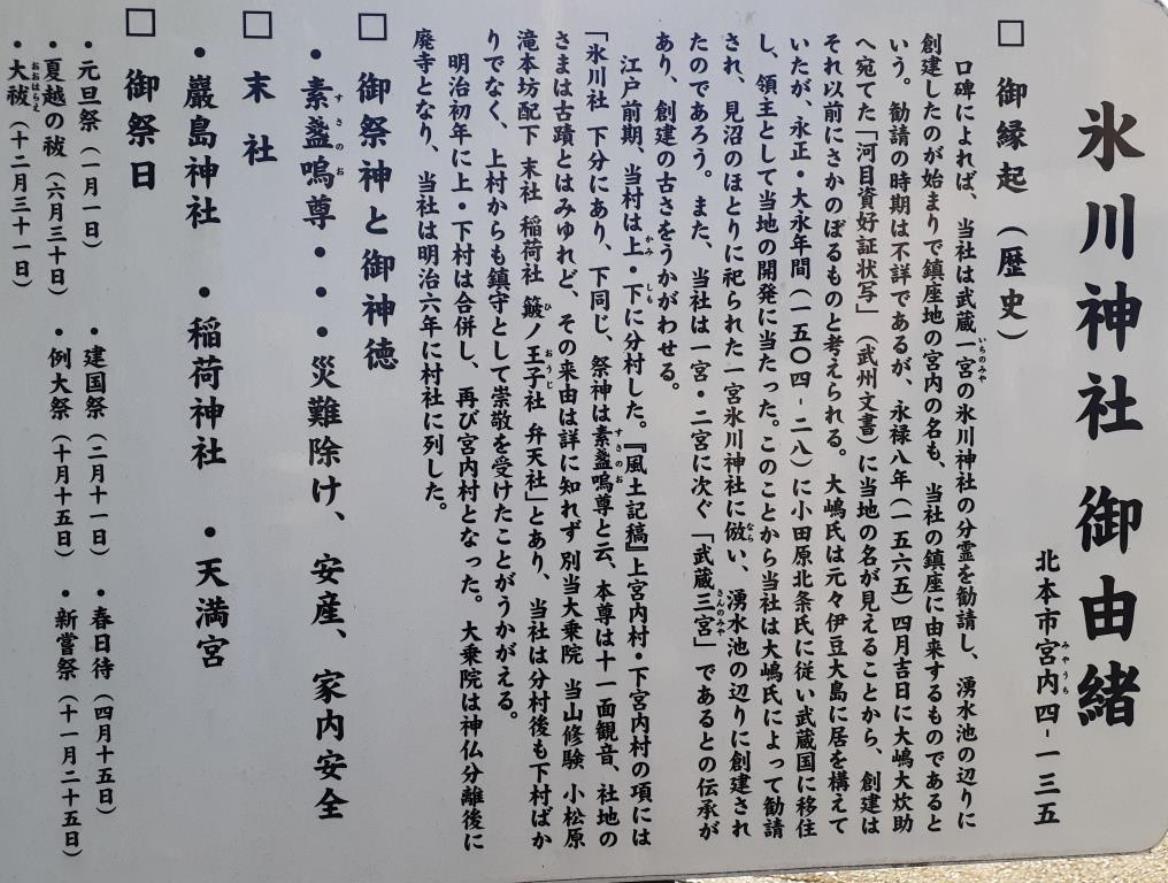 氷川神社 御由緒
北本市宮内四-一三五
□ 御縁起（歴史）
口碑によれば、当社は武蔵一宮の氷川神社の分霊を勧請し、湧水池の辺りに
創建したのが始まりで鎮座地の宮内の名も、当社の鎮座に由来するものであると
いう。勧請の時期は不詳であるが、永禄八年（一五六五）四月吉日に大嶋大炊助
へ宛てた「河目資好証状写」（武州文書）に当地の名が見えることから、創建は
それ以前にさかのぼるものと考えられる。大嶋氏は元々伊豆大島に居を構えて
いたが、永正・大永年間（一五〇四-二八）に小田原北条氏に従い武蔵国に移住
し、領主として当地の開発に当たった。このことから当社は大嶋氏によって勧請
され、見沼のほとりに祀られた一宮氷川神社に倣い、湧水池の辺りに創建され
たのであろう。また、当社は一宮・二宮に次ぐ「武蔵三宮」であるとの伝承が
あり、創建の古さをうかがわせる。
江戸前期、当村は上・下に分村した。『風土記稿』上宮内村・下宮内村の項には
「氷川社 下分にあり、下同じ、祭神は素盞嗚尊と云、本尊は十一面観音、社地の
さまは古蹟とはみゆれど、その来由は詳に知れず 別当大乗院 当山修験 小松原
滝本坊配下 末社 稲荷社 簸ノ王子社 弁天社」とあり、当社は分村後も下村ばか
りでなく、上村からも鎮守として崇敬を受けたことがうかがえる。
明治初年に上・下村は合併し、再び宮内村となった。大乗院は神仏分離後に
廃寺となり、当社は明治六年に村社に列した。
□ 御祭神と御神徳
・素盞嗚尊・・・災難除け、安産、家内安全
□ 末社
・巖島神社 ・稲荷神社 ・天満宮
□ 御祭日
・元旦祭（一月一日） ・建国祭（二月十一日） ・春日待（四月十五日）
・夏越の祓（六月三十日） ・例大祭（十月十五日） ・新嘗祭（十一月二十五日）
・大祓（十二月三十一日）